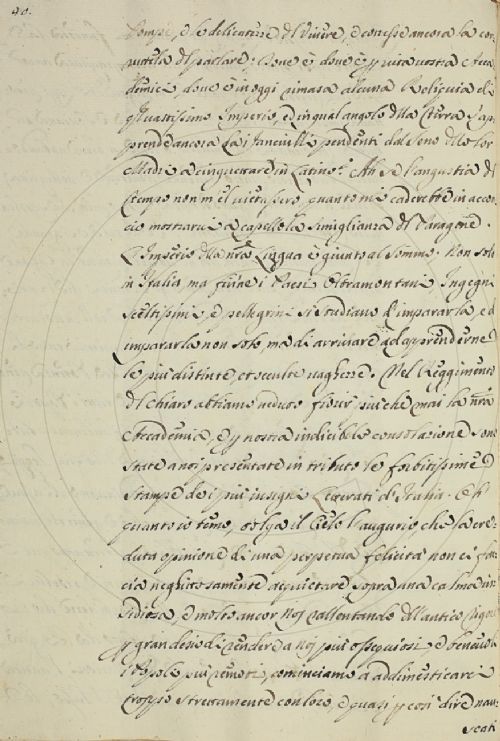 40.
Pompe, e le delicatezze del vivere, e concesse ancora la cor=
ruttela del parlare; Dov'è, dov'è p vita nostra Acca
demici, dove è in oggi rimasa alcuna Reliquia di
q Vastissimo Imperio, ed in qual angolo della Terra s'ap
prende ancora da i fanciulli pendenti dal seno delle lor
Madri a cinguettare in Latino? Ah se l'angustia del
tempo non m'el vietasse, quanto mi caderebbe in accon
cio mostrarvi a capello la simiglianza del Paragone.
L'Imperio della nrã Lingua è giunto al sommo. Non solo
in Italia, ma fuine i Paesi Oltramontani Ingegni
Sceltissimi e pellegrini si studiano d'impararla, ed
impararla non solo, ma di arrivare ad apprenderne
le più distinte, et occulte vaghezze. Nel Reggimento
del Chiaro abbiamo veduto fiorir più che mai la nrã
Accademia, e p nostra indicibile consolazione sono
state a noi presentate in tributo le forbitissime
stampe dei più insigni Letterati d'Italia. Oh
quanto io temo, tolga il Cielo l'augurio, che la cre=
duta opinione di una perpetua felicità non ci fac
cia neghittosamente acquietare sopra una calma in
sidiosa, e molto ancor noi rallentando dell'antico rigore
p gran desio di rendere a noi più ossequiosi e benevoli
i Popoli più remoti, cominciamo a addimesticarci
troppo strettamente con loro, e quasi p così dire nau=
seati